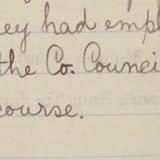 they had empl
the Co. Counci
course.